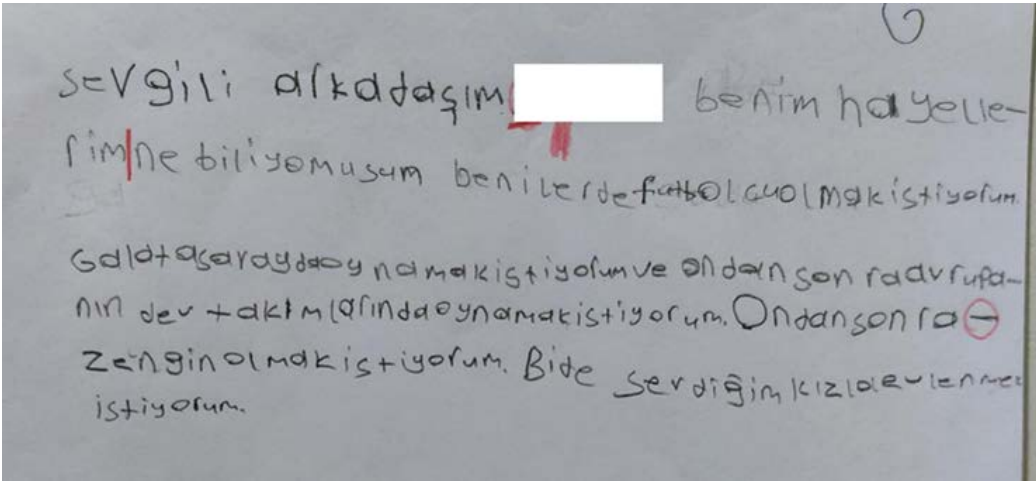 6
sevgili arkadaşım benim hayelle-
rim ne biliyomusum ben ilerde futbolcu olmak istiyorum.
Galatasarayda oynamak istiyorum ve ondan sonra avrupa-
nın dev takımlarında oynamak istiyorum. Ondan sonra -
zengin olmak istiyorum. Bide serdiğim kızla evlenmek
istiyorum.